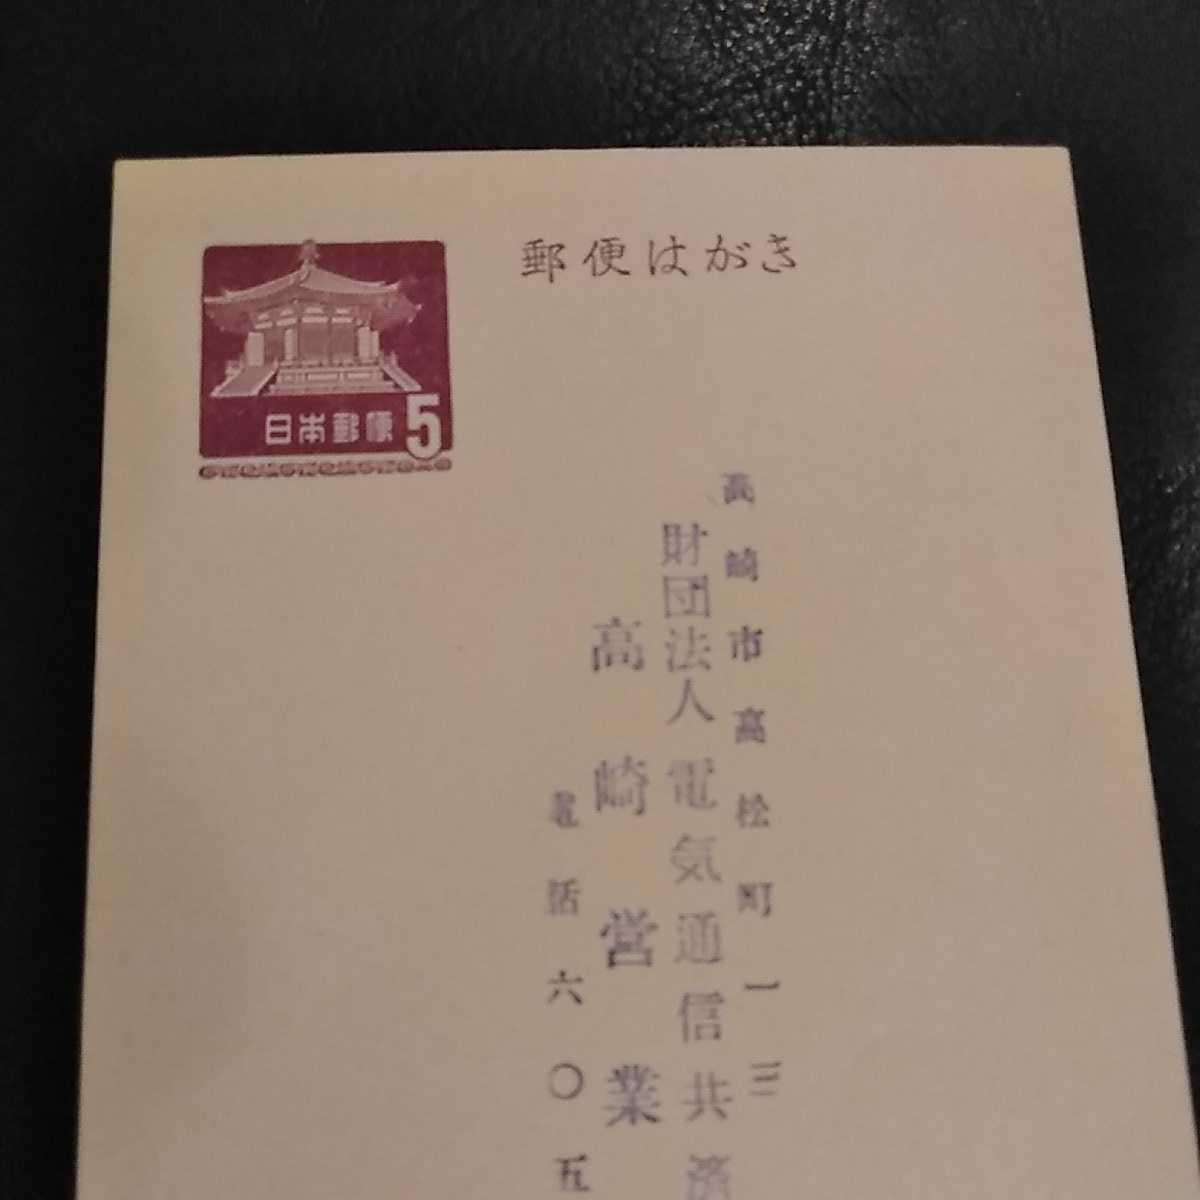 郵便はがき
日本郵便 5
高崎市高松町一三
財団法人電気通信共済
高崎営業
電話六〇五